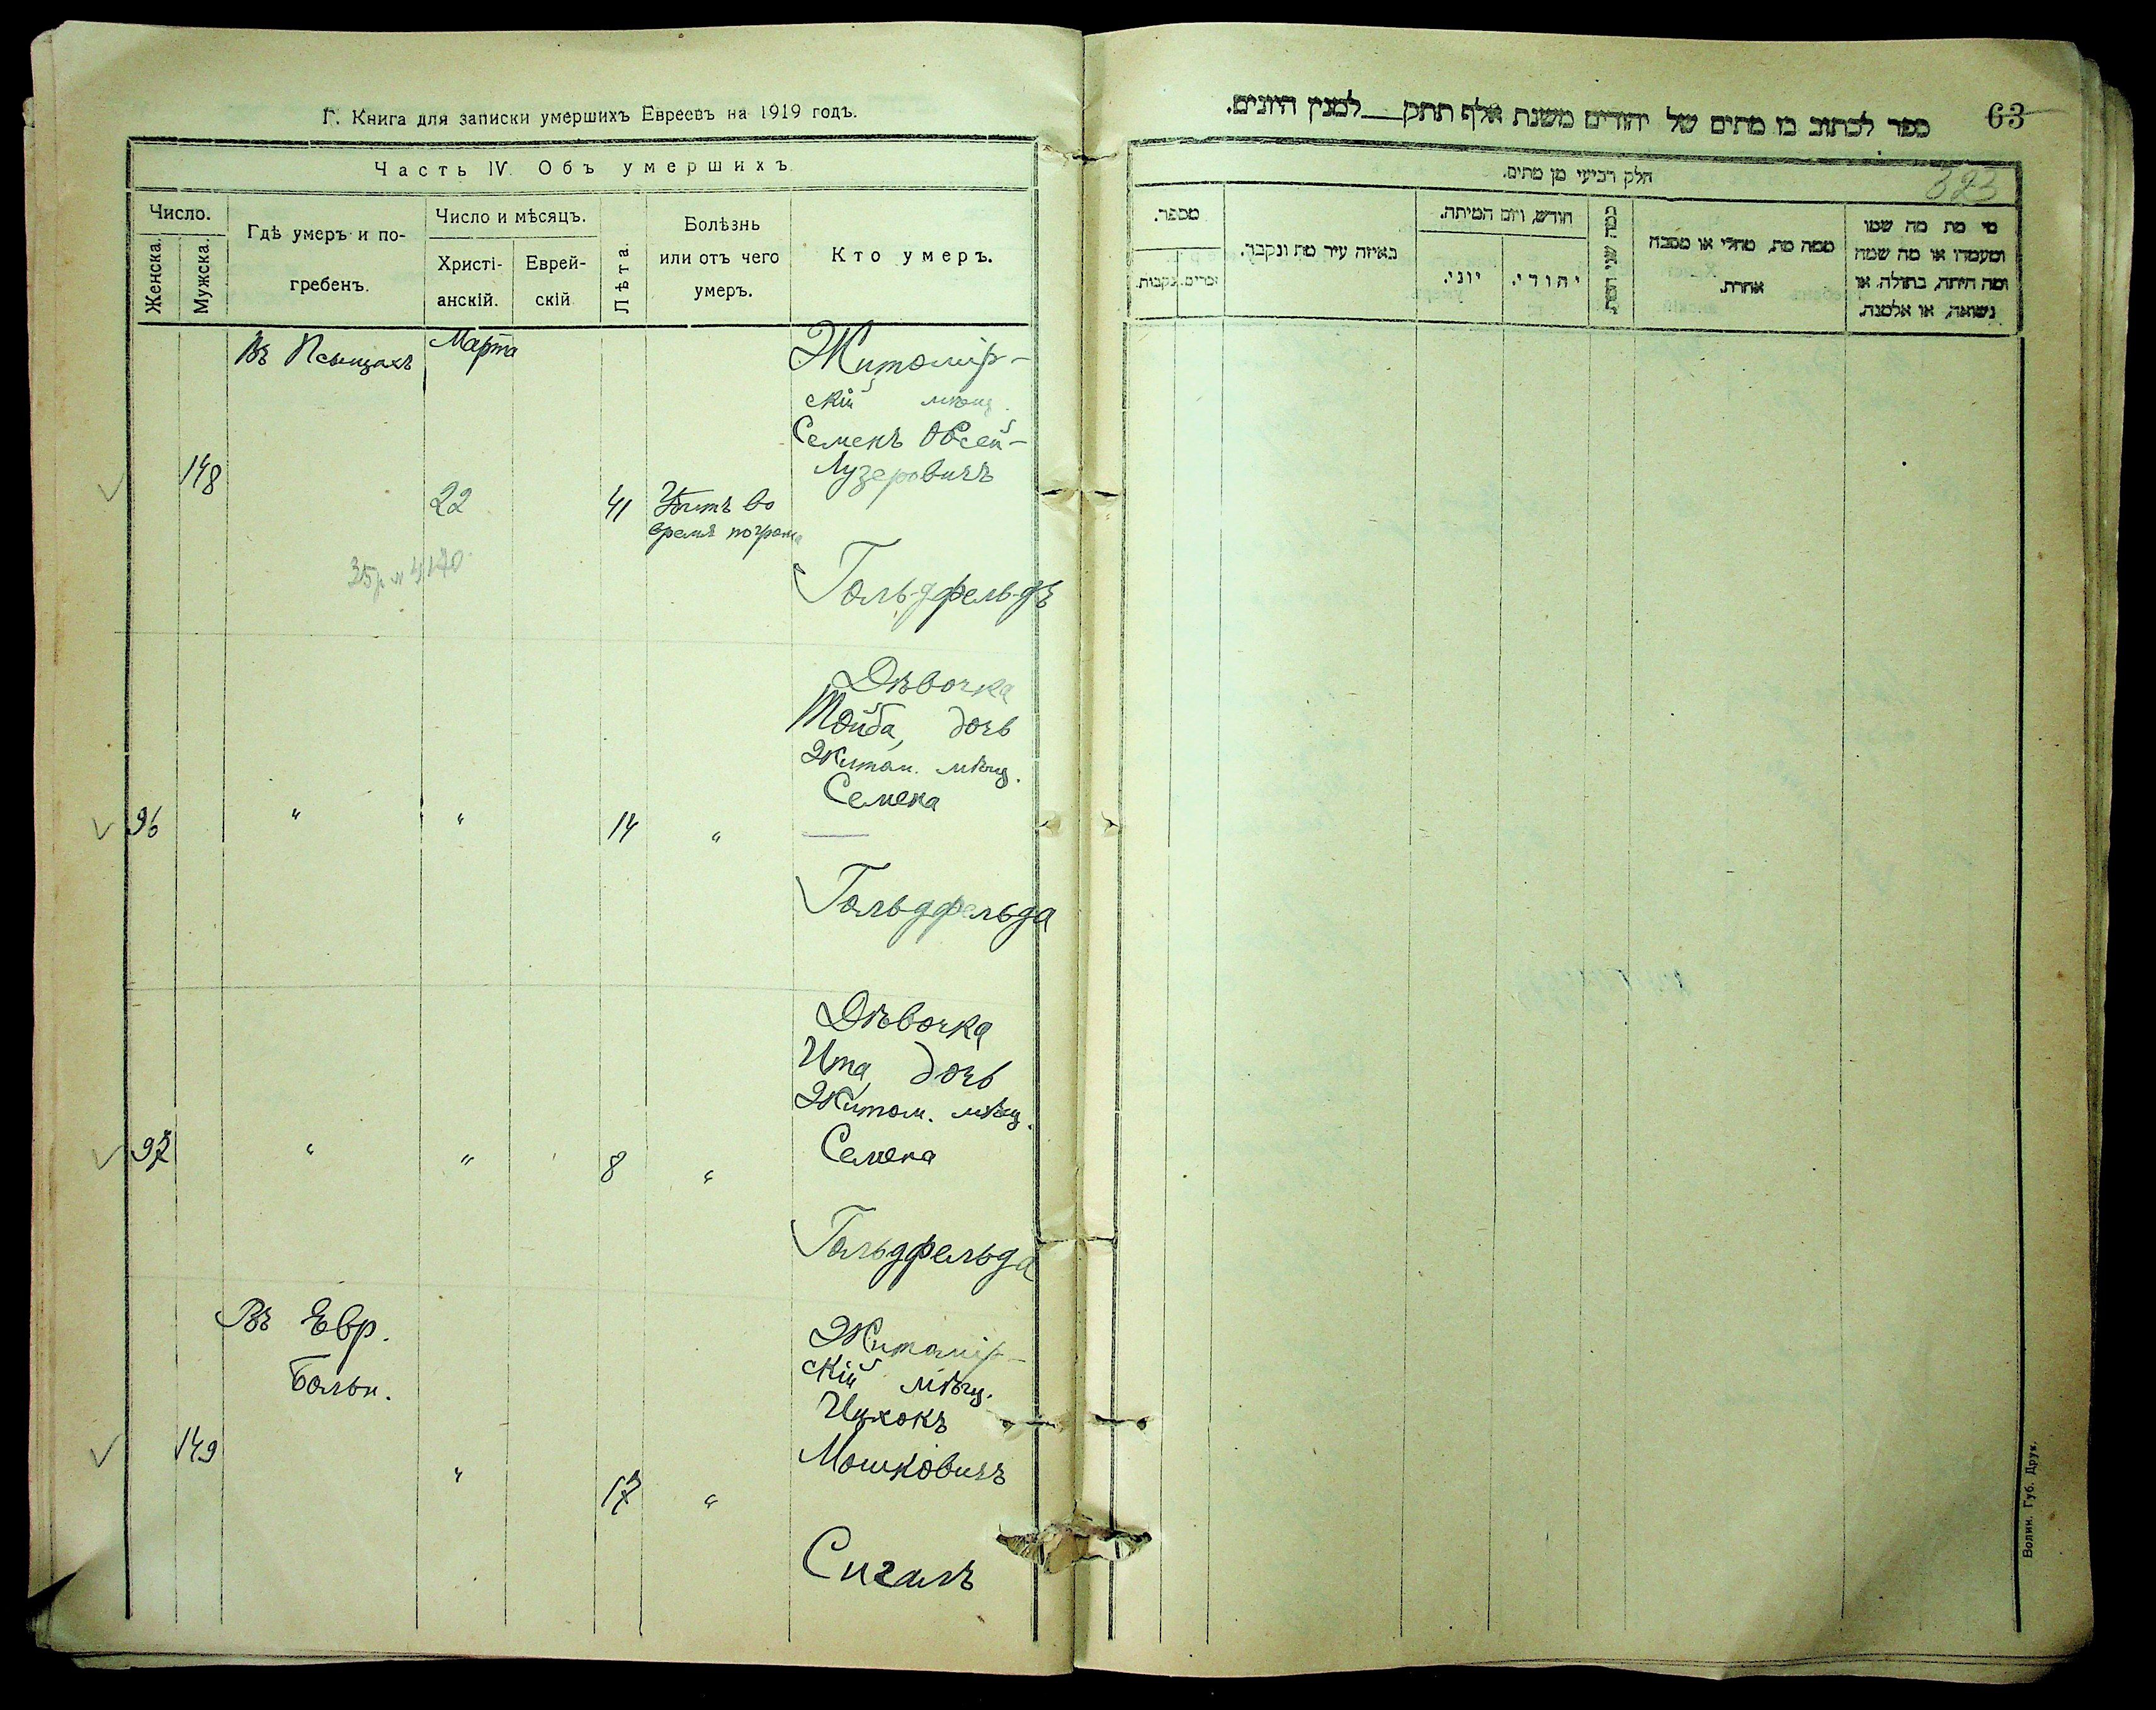 Г. Книга для записки умершихъ Евреевъ на 1919 годъ.
Часть IV. Объ умершихъ.
Число.
Женска.
Мужска.
Гдѣ умеръ и по-
гребенъ.
Число и мѣсяцъ.
Христі-
анскій.
Еврей-
скій
Лѣта.
Болѣзнь
или отъ чего
умеръ.
Кто умеръ.
Въ Псыщахъ
Марта
148
22
41
Убитъ во
время погрома
Житомір-
скій мѣщ.
Семекъ Овсей-
Лузеровичъ
Гольдфельдъ
Дѣвочка
Тойба, дочь
Житом. мѣщ.
Семека
96 " " 14 "
Гольдфельда
Дѣвочка
Ита, дочь
Житом. мѣщ.
Семека
97 " " 8 "
Гольдфельда
Въ Евр.
Больн.
149 " 17 "
Житомір-
скій мѣщ.
Ицхокъ
Мошковичъ
Сигалъ
63
ספר לכתוב בו מתים של יהודים משנת אלף תתק למנין היונים.
חלק רביעי מן מתים.
323
מספר.
זכרים.
נקבות.
באיזה עיר מת ונקבר.
חודש, ויום המיתה.
יוני.
יהודי.
ממה מת, מחלי או מסבה
אחרת.
מי מת מה שמו
ומעמדו או מה שמה
ומה היתה, בתולה, או
נשואה, או אלמנה.
Волин. Губ. Друк.